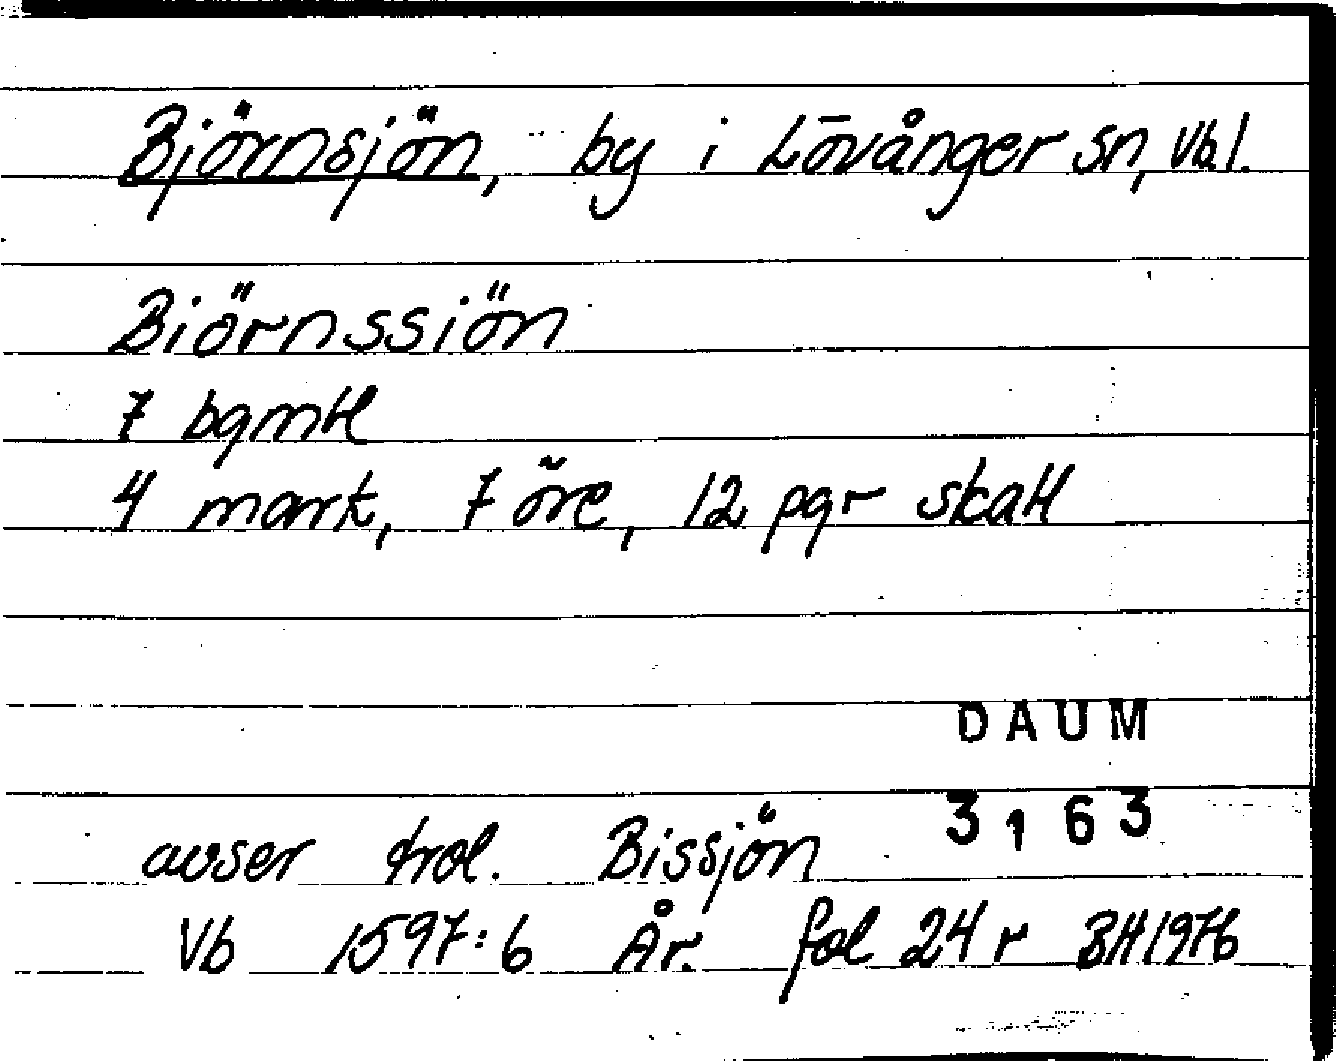 Björnsjön, by i Lövånger sn, Vbl.
Biörnssiön
7 bgmtl
4 mark, 7 öre, 12 pgr skatt
DAUM
3163
avser trol. Bissjön
Vb 1597:6 År. fol 24 r BH 1976